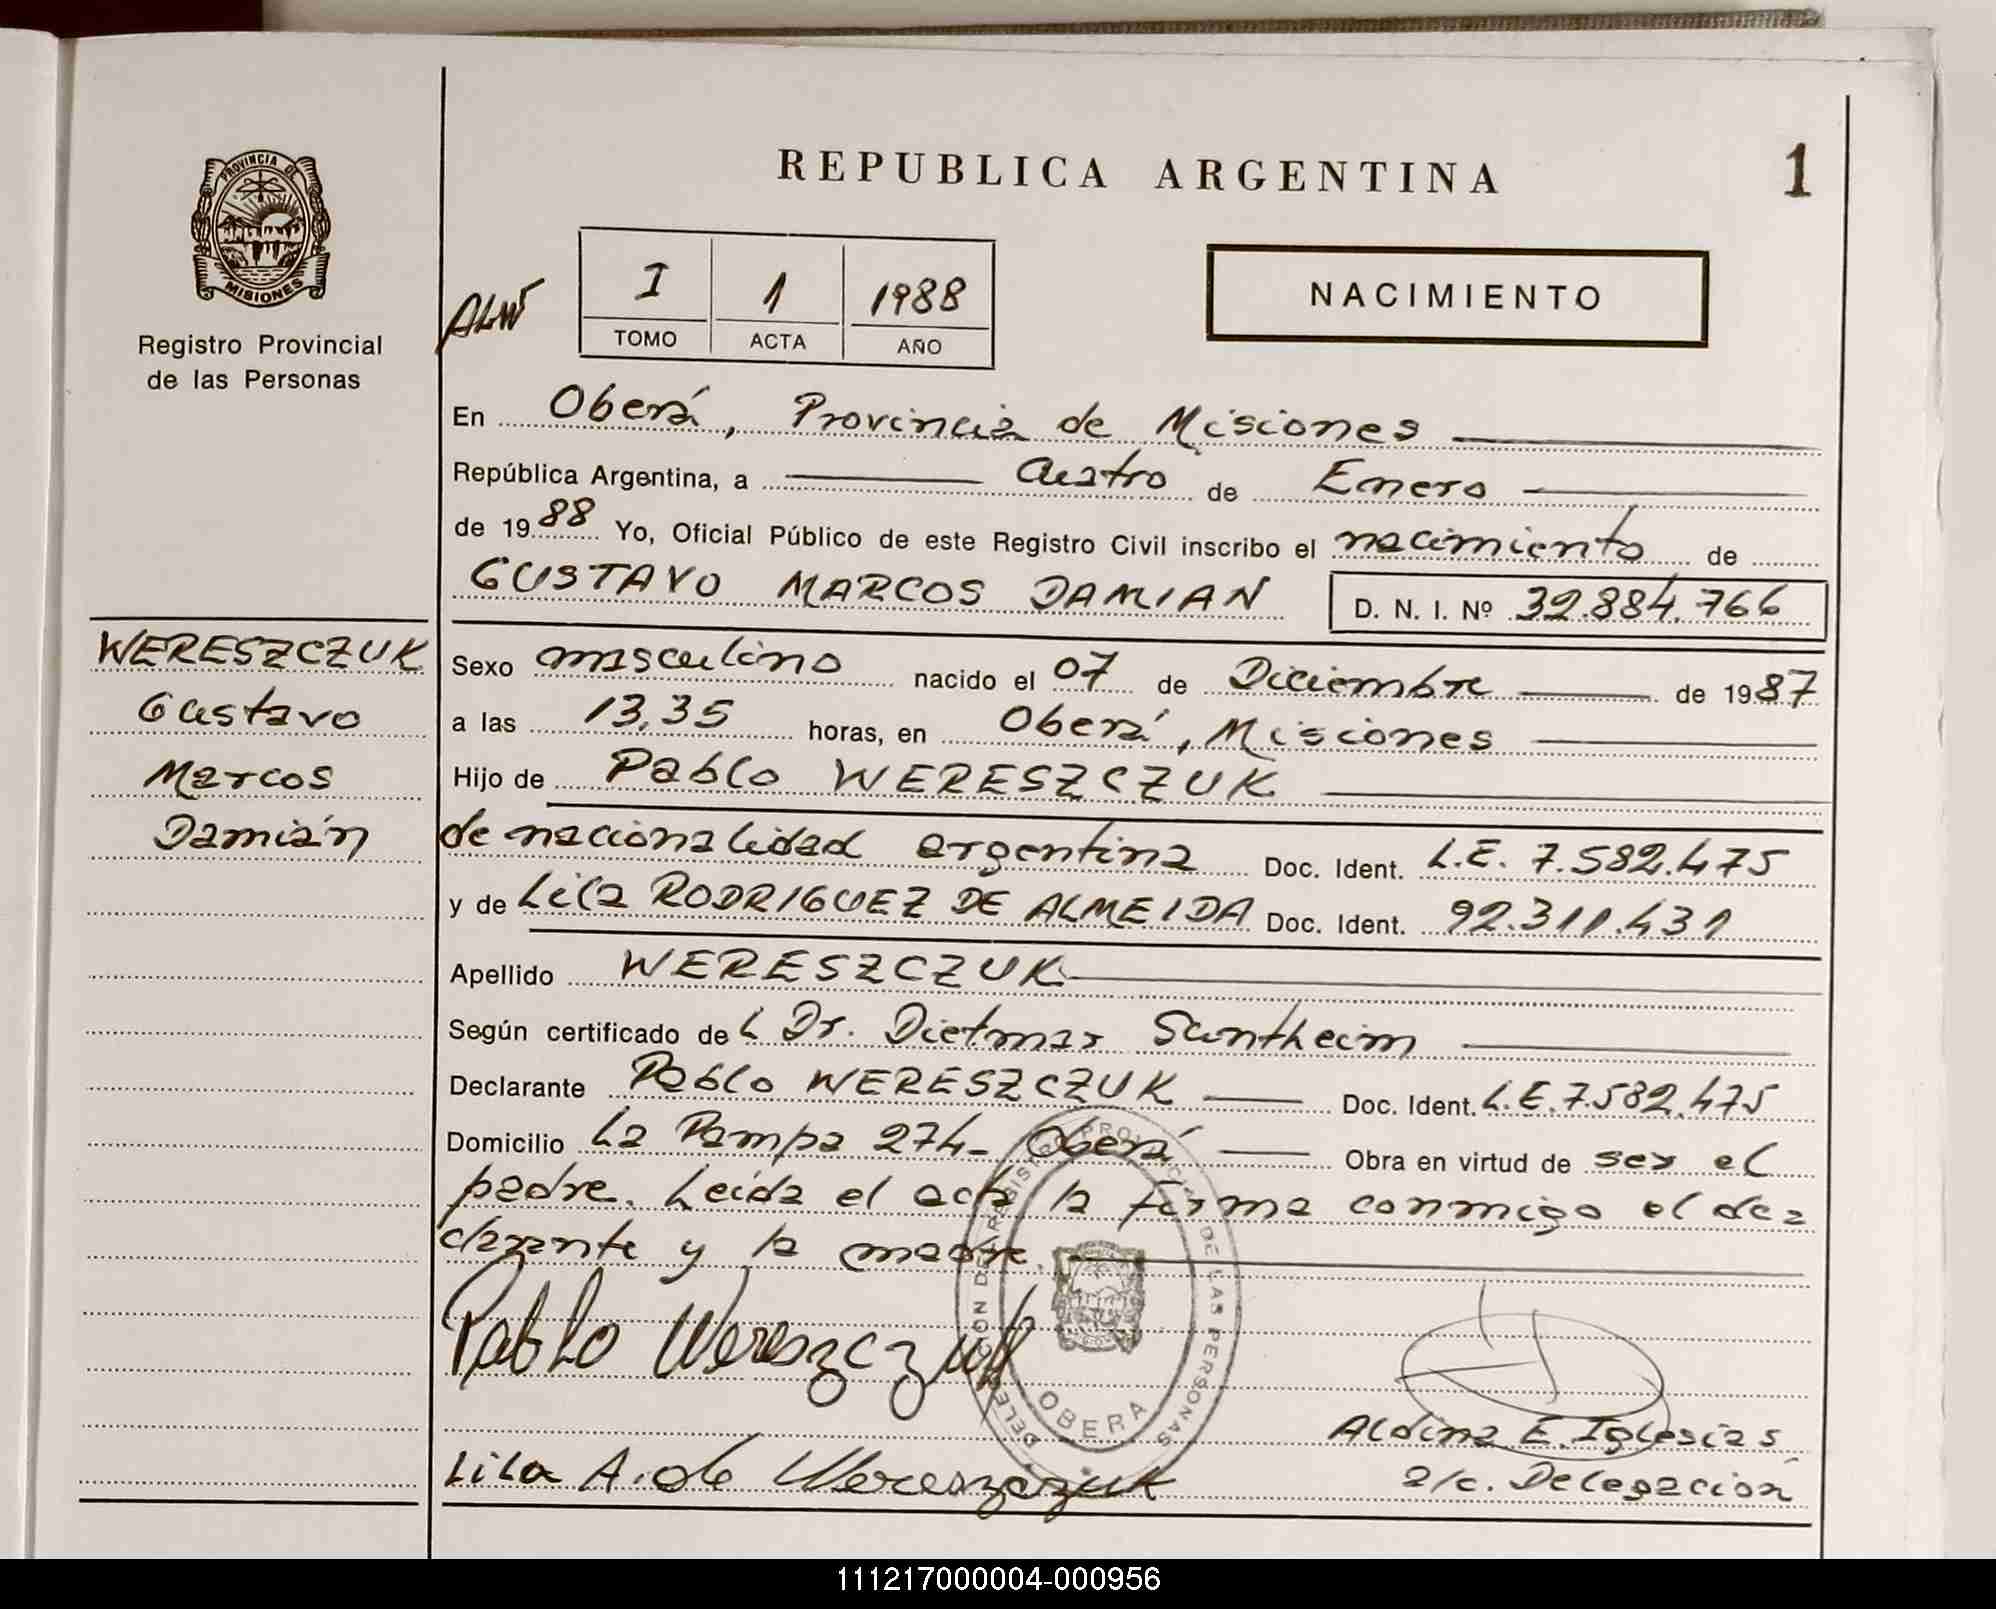 REPUBLICA ARGENTINA
1
PROVINCIA DE MISIONES
Registro Provincial
de las Personas
NACIMIENTO
I 1 1988
TOMO ACTA AÑO
En Oberá, Provincia de Misiones
República Argentina, a cuatro de Enero
de 1988 Yo, Oficial Público de este Registro Civil inscribo el nacimiento de
GUSTAVO MARCOS DAMIAN D. N. I. Nº 32.884.766
WERESZCZUK
Gustavo
Marcos
Damián
Sexo masculino nacido el 07 de Diciembre de 1987
a las 13,35 horas, en Oberá, Misiones
Hijo de Pablo WERESZCZUK
de nacionalidad argentina Doc. Ident. L.E. 7.582.475
y de Lila RODRIGUEZ DE ALMEIDA Doc. Ident. 92.311.431
Apellido WERESZCZUK
Según certificado de L Dr. Dietmar Suntheim
Declarante Pablo WERESZCZUK Doc. Ident. L.E. 7.582.475
Domicilio La Pampa 274- Oberá Obra en virtud de ser el
padre. Leída el acta la firma conmigo el dec
larante y la madre.
Pablo Wereszczuk
DELEGACION DE REGISTRO PROVINCIAL DE LAS PERSONAS
OBERA
Aldina E. Iglesias
a/c. Delegación
Lila A. de Wereszczuk
111217000004-000956